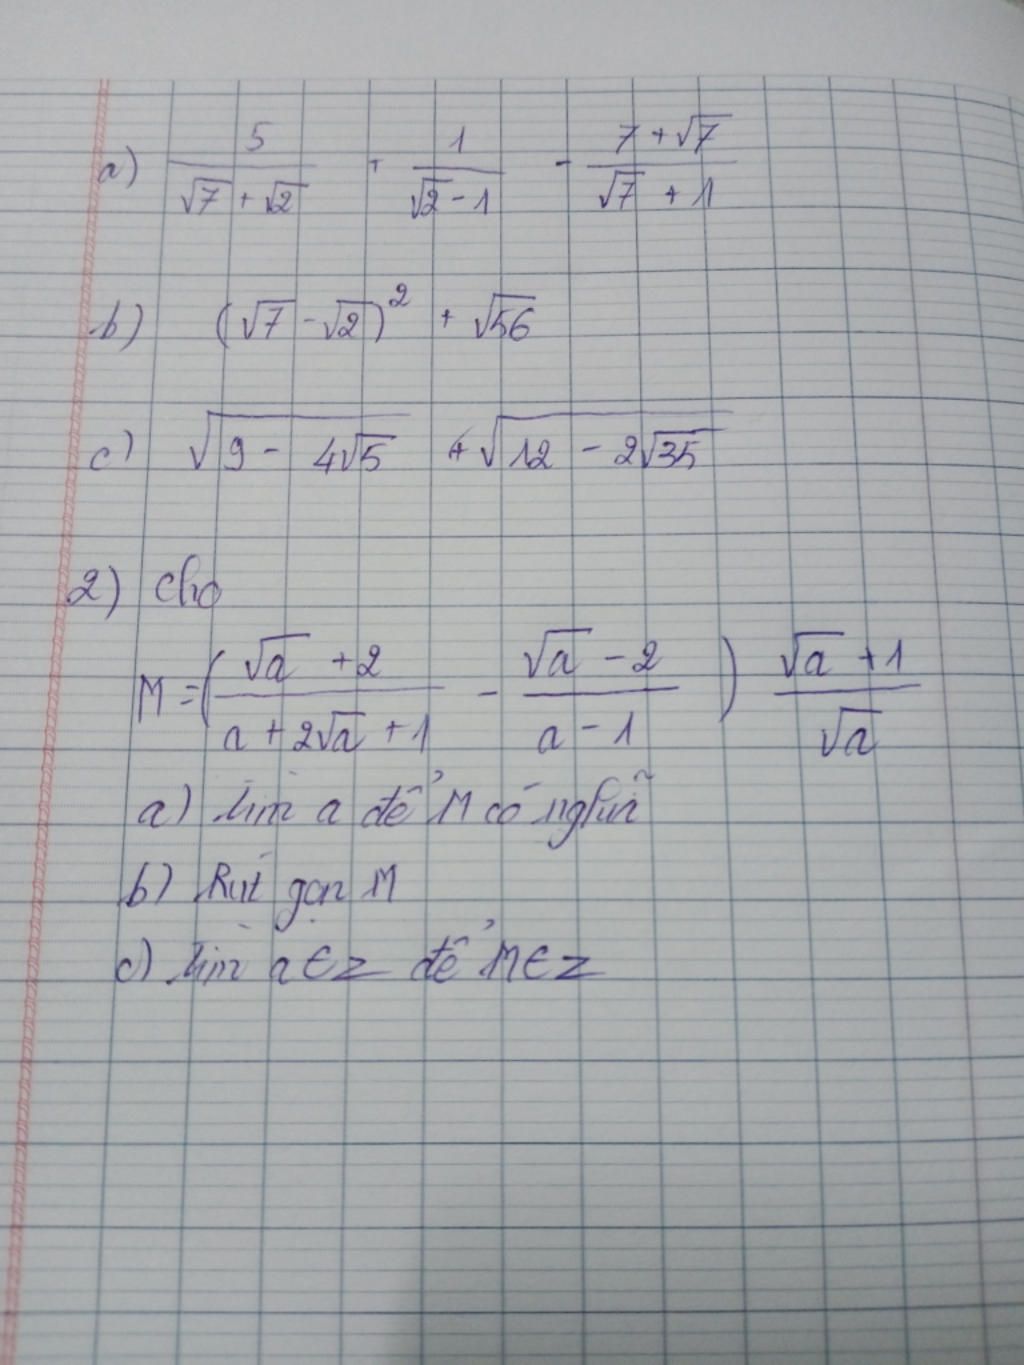 a) 5/(√7 + √2) + 1/(√2 - 1) - (7 + √7)/(√7 + 1)
b) (√7 - √2)² + √56
c) √(9 - 4√5) + √(12 - 2√35)
2) cho
M = ( (√a + 2)/(a + 2√a + 1) - (√a - 2)/(a - 1) ) (√a + 1)/√a
a) tìm a để M có nghĩã
b) Rút gọn M
c) tìm a ∈ Z để M ∈ Z